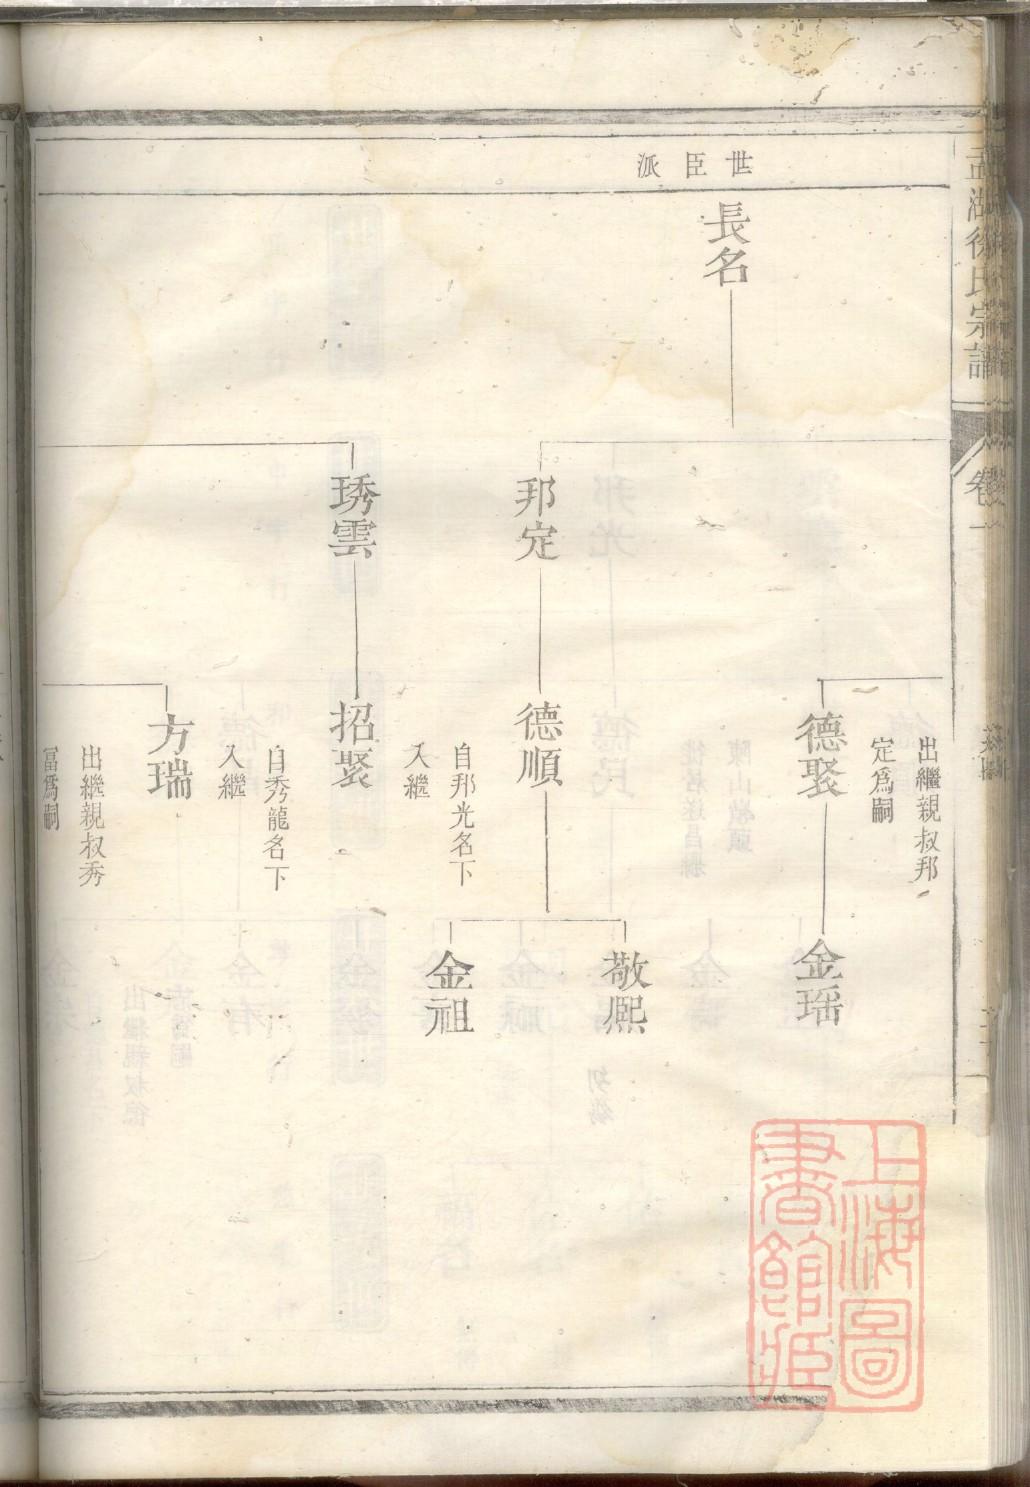 世臣派
盂湖徐氏宗譜
卷一
長名
邦定
琇雲
出繼親叔邦
定為嗣
德聚
德順
自邦光名下
入繼
招聚
自秀龍名下
入繼
方瑞
出繼親叔秀
富為嗣
金瑤
敬熙
金祖
上海圖
書館藏